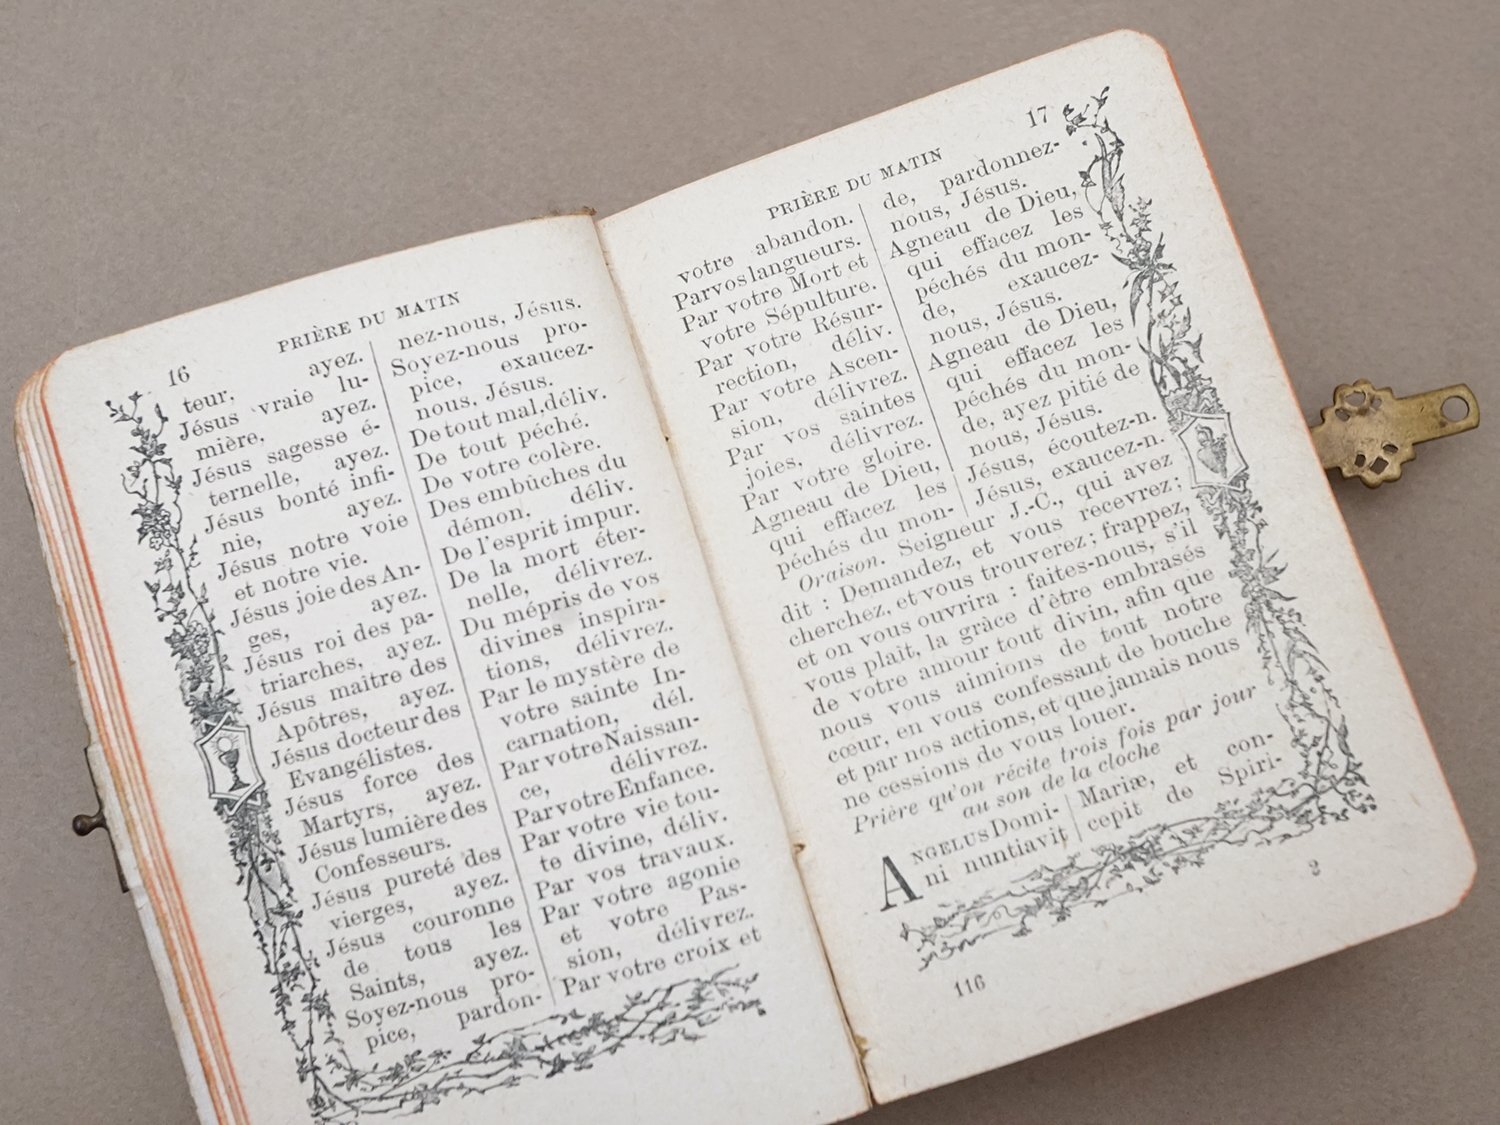 16
PRIÈRE DU MATIN
teur, ayez.
Jésus vraie lu-
mière, ayez.
Jésus sagesse é-
ternelle, ayez.
Jésus bonté infi-
nie, ayez.
Jésus notre voie
et notre vie.
Jésus joie des An-
ges, ayez.
Jésus roi des pa-
triarches, ayez.
Jésus maître des
Apôtres, ayez.
Jésus docteur des
Evangélistes.
Jésus force des
Martyrs, ayez.
Jésus lumière des
Confesseurs.
Jésus pureté des
vierges, ayez.
Jésus couronne
de tous les
Saints, ayez.
Soyez-nous pro-
pice, pardon-
nez-nous, Jésus.
Soyez-nous pro-
pice, exaucez-
nous, Jésus.
De tout mal, déliv.
De tout péché.
De votre colère.
Des embûches du
démon, déliv.
De l'esprit impur.
De la mort éter-
nelle, délivrez.
Du mépris de vos
divines inspira-
tions, délivrez.
Par le mystère de
votre sainte In-
carnation, dél.
Par votre Naissan-
ce, délivrez.
Par votre Enfance.
Par votre vie tou-
te divine, déliv.
Par vos travaux.
Par votre agonie
et votre Pas-
sion, délivrez.
Par votre croix et
PRIÈRE DU MATIN
17
votre abandon.
Par vos langueurs.
Par votre Mort et
votre Sépulture.
Par votre Résur-
rection, déliv.
Par votre Ascen-
sion, délivrez.
Par vos saintes
joies, délivrez.
Par votre gloire.
Agneau de Dieu,
qui effacez les
péchés du mon-
de, pardonnez-
nous, Jésus.
Agneau de Dieu,
qui effacez les
péchés du mon-
de, exaucez-
nous, Jésus.
Agneau de Dieu,
qui effacez les
péchés du mon-
de, ayez pitié de
nous, Jésus.
Jésus, écoutez-n.
Jésus, exaucez-n.
Oraison. Seigneur J.-C., qui avez
dit : Demandez, et vous recevrez;
cherchez, et vous trouverez; frappez,
et on vous ouvrira : faites-nous, s'il
vous plait, la grâce d'être embrasés
de votre amour tout divin, afin que
nous vous aimions de tout notre
cœur, en vous confessant de bouche
et par nos actions, et que jamais nous
ne cessions de vous louer.
Prière qu'on récite trois fois par jour
au son de la cloche
ANGELUS Domi-
ni nuntiavit
Mariæ, et con-
cepit de Spiri-
2
116